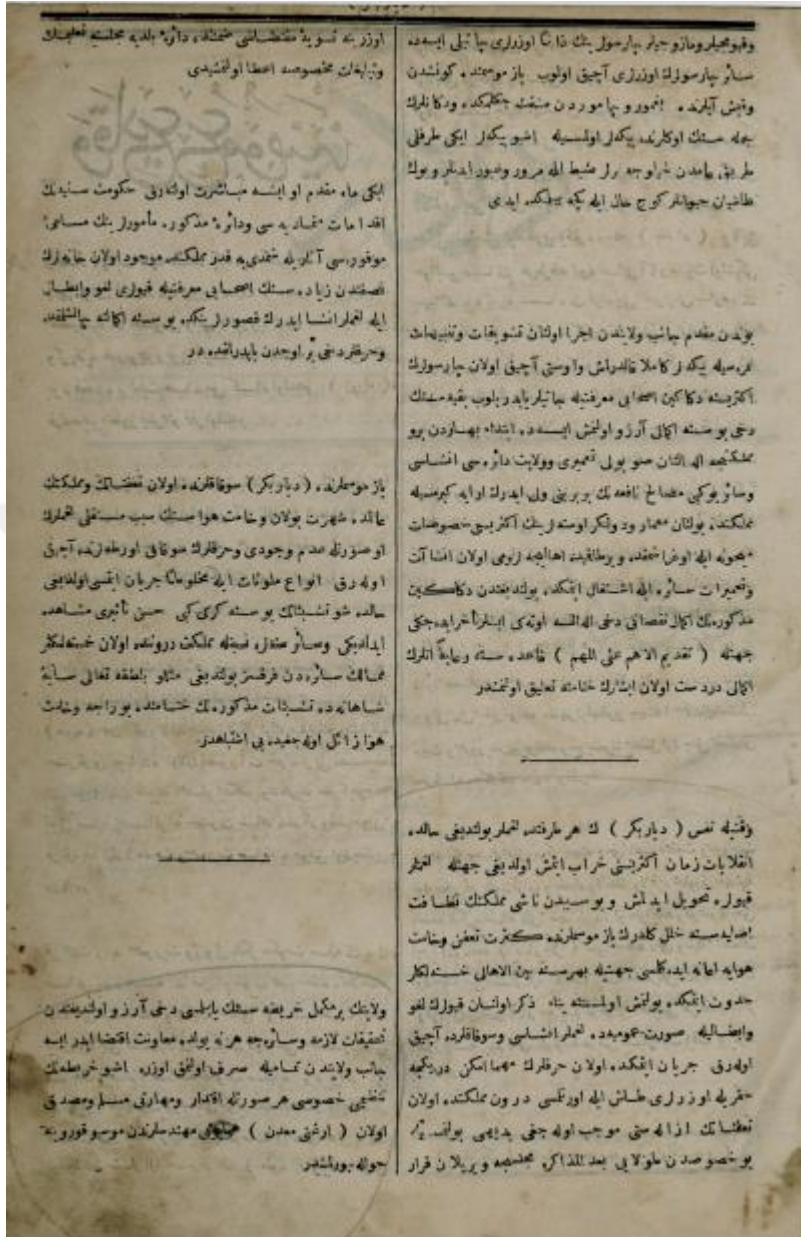 وقیومجیلر ومازوجیلر چارسولرینك ذاتا اوزرلری چاتیلی ایسه ده
سائر چارسولرك اوزرلری آچیق اولوب یاز موسمنده كونشدن
وقیش آیلرنده یغمور و چاموردن منفعت چكلمكده ودكانلرك
جمله سنك اوكلرنده پیكه لر اولمسیله اشبو پیكه لر ایكی طرفلی
طریق عامدن برر ضبط ایله مرور وعبور ایدنلر ویوك
طاشیان حیوانلر كوج حال ایله كچه بیلمكده ایدی
بوندن مقدم جانب ولایتدن اجرا اولنان تشویقات وتنبیهات
ثمره سیله پیكه لر كاملا قالدراش واوستی آچیق اولان چارسولرك
اكثریسنه دكاكین اصحابی معرفتیله چاتیلر یاپدیریلوب بقیه سنك
دخی بو سنه اكمالی آرزو اولنمش ایسه ده ابتداء بهاردن برو
مملكتجه اله النان صو یولی تعمیری وولایت دائره سی انشاسی
وسائر بوكبی مصالح نافعه نك بربرینی ولی ایدرك ارایه كیرمسیله
مملكتده بولنان معمار ودولكر اوسته لرینك اكثریسی خصوصات
مبحوثه ایله اوغراشمقده وبرطاقیده اهالیجه لزومی اولان انشاآت
وتعمیرات سائره ایله اشتغال ایتمكده بولندیغندن دكاكین
مذكوره نك اكمال نقصانی دخی اله النسه اوته كی ایشلر تأخر ایده جكی
جهتله ( تقدیم الاهم علی المهم ) قاعده سنه رعایةً انلرك
اكمالی دردست اولان ایشلرك ختامنه تعلیق اولنمشدر
وقتیله نفس ( دیاربكر ) ك هر طرفنده لغملر بولندیغی حالده
انقلابات زمان اكثریسنی خراب ایتمش اولدیغی جهتله لغملر
قیولره تحویل ایدلمش و بو سببدن ناشی مملكتك نظافت
اصلیه سنه خلل كلدرك یاز موسملرنده كثرت تعفن وخامت
هوایه اعانه ایده كلمسی جهتیله بهرسنه بین الاهالی خسته لكلر
حدوث ایتمكده بولنمش اولمسنه بناء ذكر اولنان قیولرك لغو
وابطالیله صورت عمومیه ده لغملر انشاسی وسوقاقلرده آچیق
اوله رق جریان ایتمكده اولان حرقلرك مهما امكن درینجه
حفریله اوزرلری طاش ایله اورتلمسی درون مملكتده اولان
تعفناتك ازاله سنی موجب اوله جغی بدیهی بولنمش
بو خصوصدن طولایی بعد المذاكره مجلسجه ویریلان قرار
اوزرینه تسویهٔ مقتضاسی ضمننده دائرهٔ بلدیه مجلسنه تعلیمات
وتبلیغات مخصوصه اعطا اولنمشیدی
ایكی ماه مقدم او ایشه مباشرت اولنه رق حكومت سنیه نك
اقدامات متمادیه سی ودائرهٔ مذكوره مأمورلرینك مساعئ
موفوره سی آثاریله شمدی یه قدر مملكتده موجود اولان خانه لرك
نصفندن زیاده سنك اصحابی معرفتیله قیولری لغو وابطال
ایله لغملر انشا ایدرك قصورلرینكده بو سنه اكمالنه چالشلمقده
وحرقلر دخی بر اوجدن یاپدرلقده در
یاز موسملرنده ( دیاربكر ) سوقاقلرنده اولان تعفناتك ومملكتك
عالده شهرت بولان وخامت هواسنك سبب مستقلی لغملرك
او صورتله عدم وجودی وحرقلرك سوقاق اورطه لرنده آچیق
اوله رق انواع ملوثات ایله مخلوطاً جریان ایتمسی اولدیغی
حالده شو تشبثاتك بو سنه كرك كبی حسن تأثیری مشاهده
ایدلدیكی وسائر سنه لره نسبتله مملكت دروننده اولان خسته لكلر
ممالك سائره دن فرقسز بولندیغی مثللو بلطفه تعالی سایهٔ
شاهانه ده تشبثات مذكوره نك ختامنده بوراجه وخامت
هوا زائل اوله جغیده بی اشتباهدر
ولایتك برمكمل خریطه سنك یاپلمسی دخی آرزو اولندیغندن
تحقیقات لازمه وسائره جه هر نه یولده معاونت اقتضا ایدر ایسه
جانب ولایتدن تمامیله صرف اولنمق اوزره اشبو خریطه نك
تنظیمی خصوصی هر صورتله اقدار ومهارتی مسلم ومصدق
اولان ( ارغنی معدن ) مهندسلرندن موسیو
حواله بیورلمشدر